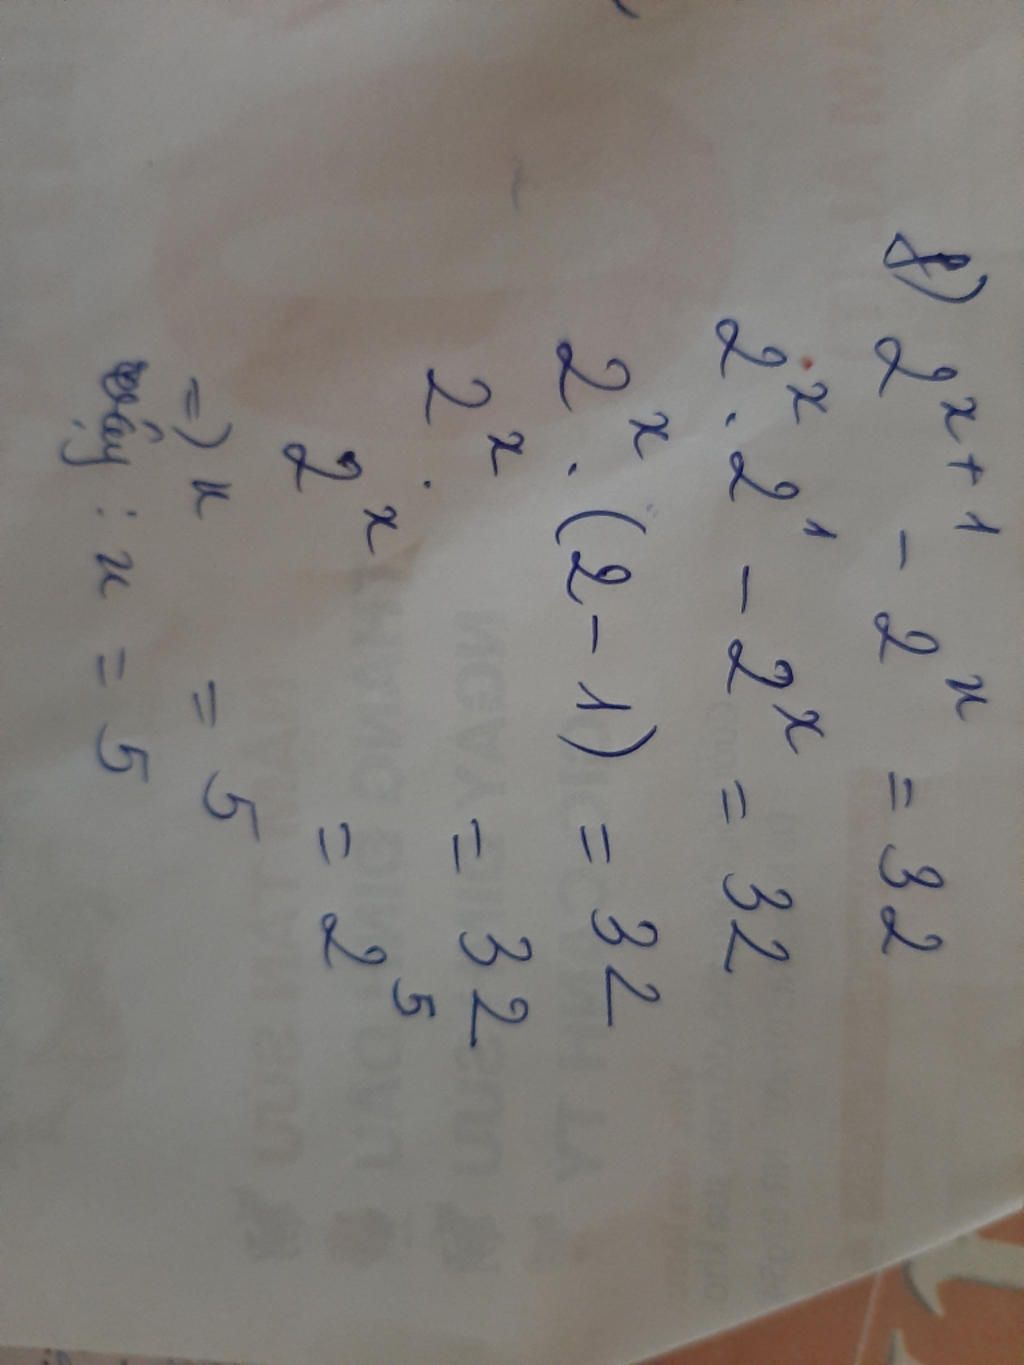 8) 2^x+1 - 2^x = 32
2^x . 2^1 - 2^x = 32
2^x . (2 - 1) = 32
2^x . = 32
2^x = 2^5
=) x = 5
vậy : x = 5